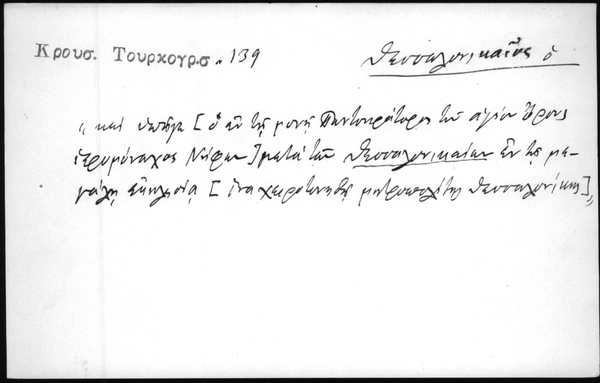 Κρουσ. Τουρκογρ.σ. 139 Θεσσαλονικαῖος ὁ
"καὶ ὑπῆγε [ὁ ἐν τῇ μονῇ Παντοκράτορος τοῦ ἁγίου Ὄρους
ἱερομόναχος Νήφων] μετὰ τῶν Θεσσαλονικαίων ἐν τῇ με-
γάλῃ ἐκκλησίᾳ [ἵνα χειροτονηθῇ μητροπολίτης Θεσσαλονίκης]"